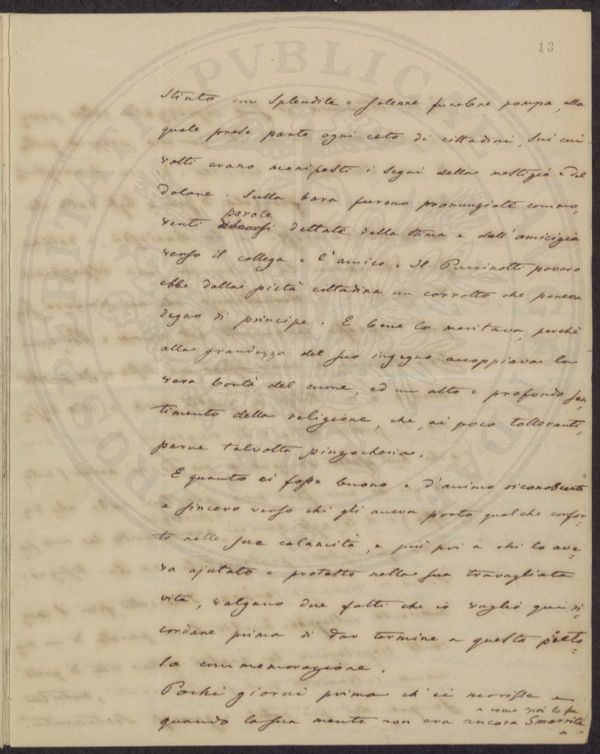 13
stinto con splendita e solenne funebre pompa, alla
quale prese parte ogni ceto di cittadini, sui cui
volti erano manifesti i segni della mestizia e del
dolore. Sulla bara furono pronunziate commo,
parole
venti dettate della stima e dall'amicizia
verso il collega e l'amico. Il Puccinotti povero
ebbe dalla pietà cittadina un corrotto che pareva
degno di principe. E bene lo meritava, perchè
alla grandezza del suo ingegno accoppiava la
vera bontà del cuore, ed un alto e profondo sen-
timento della religione, che, ai poco tolleranti,
parve talvolta pinzocheria.
E quanto ei fosse buono e d'animo riconoscente
e sincero verso chi gli aveva porto qualche confor-
to nelle sue calamità, e più poi a chi lo ave-
va ajutato e protetto nella sua travagliata
vita, valgano due fatti che io voglio qui ri
cordare prima di dar termine a questa
la commemorazione.
Pochi giorni prima ch'ei morisse e
come poi lo fu
quando la sua mente non era ancora smarrita
PVBLICAE